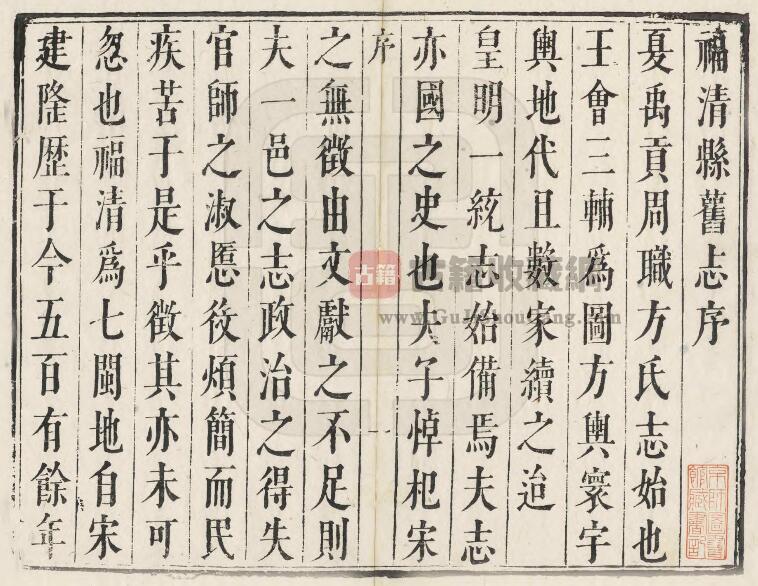 福清縣舊志序
夏禹貢周職方氏志始也
王會三輔為圖方輿寰宇
輿地代且數家續之迨
皇明一統志始備焉夫志
亦國之史也夫子悼杞宋
序
一
之無徵由文獻之不足則
夫一邑之志政治之得失
官師之淑慝役煩簡而民
疾苦于是乎徵其亦未可
忽也福清爲七閩地自宋
建隆歷于今五百有餘年
古籍
古籍收藏網